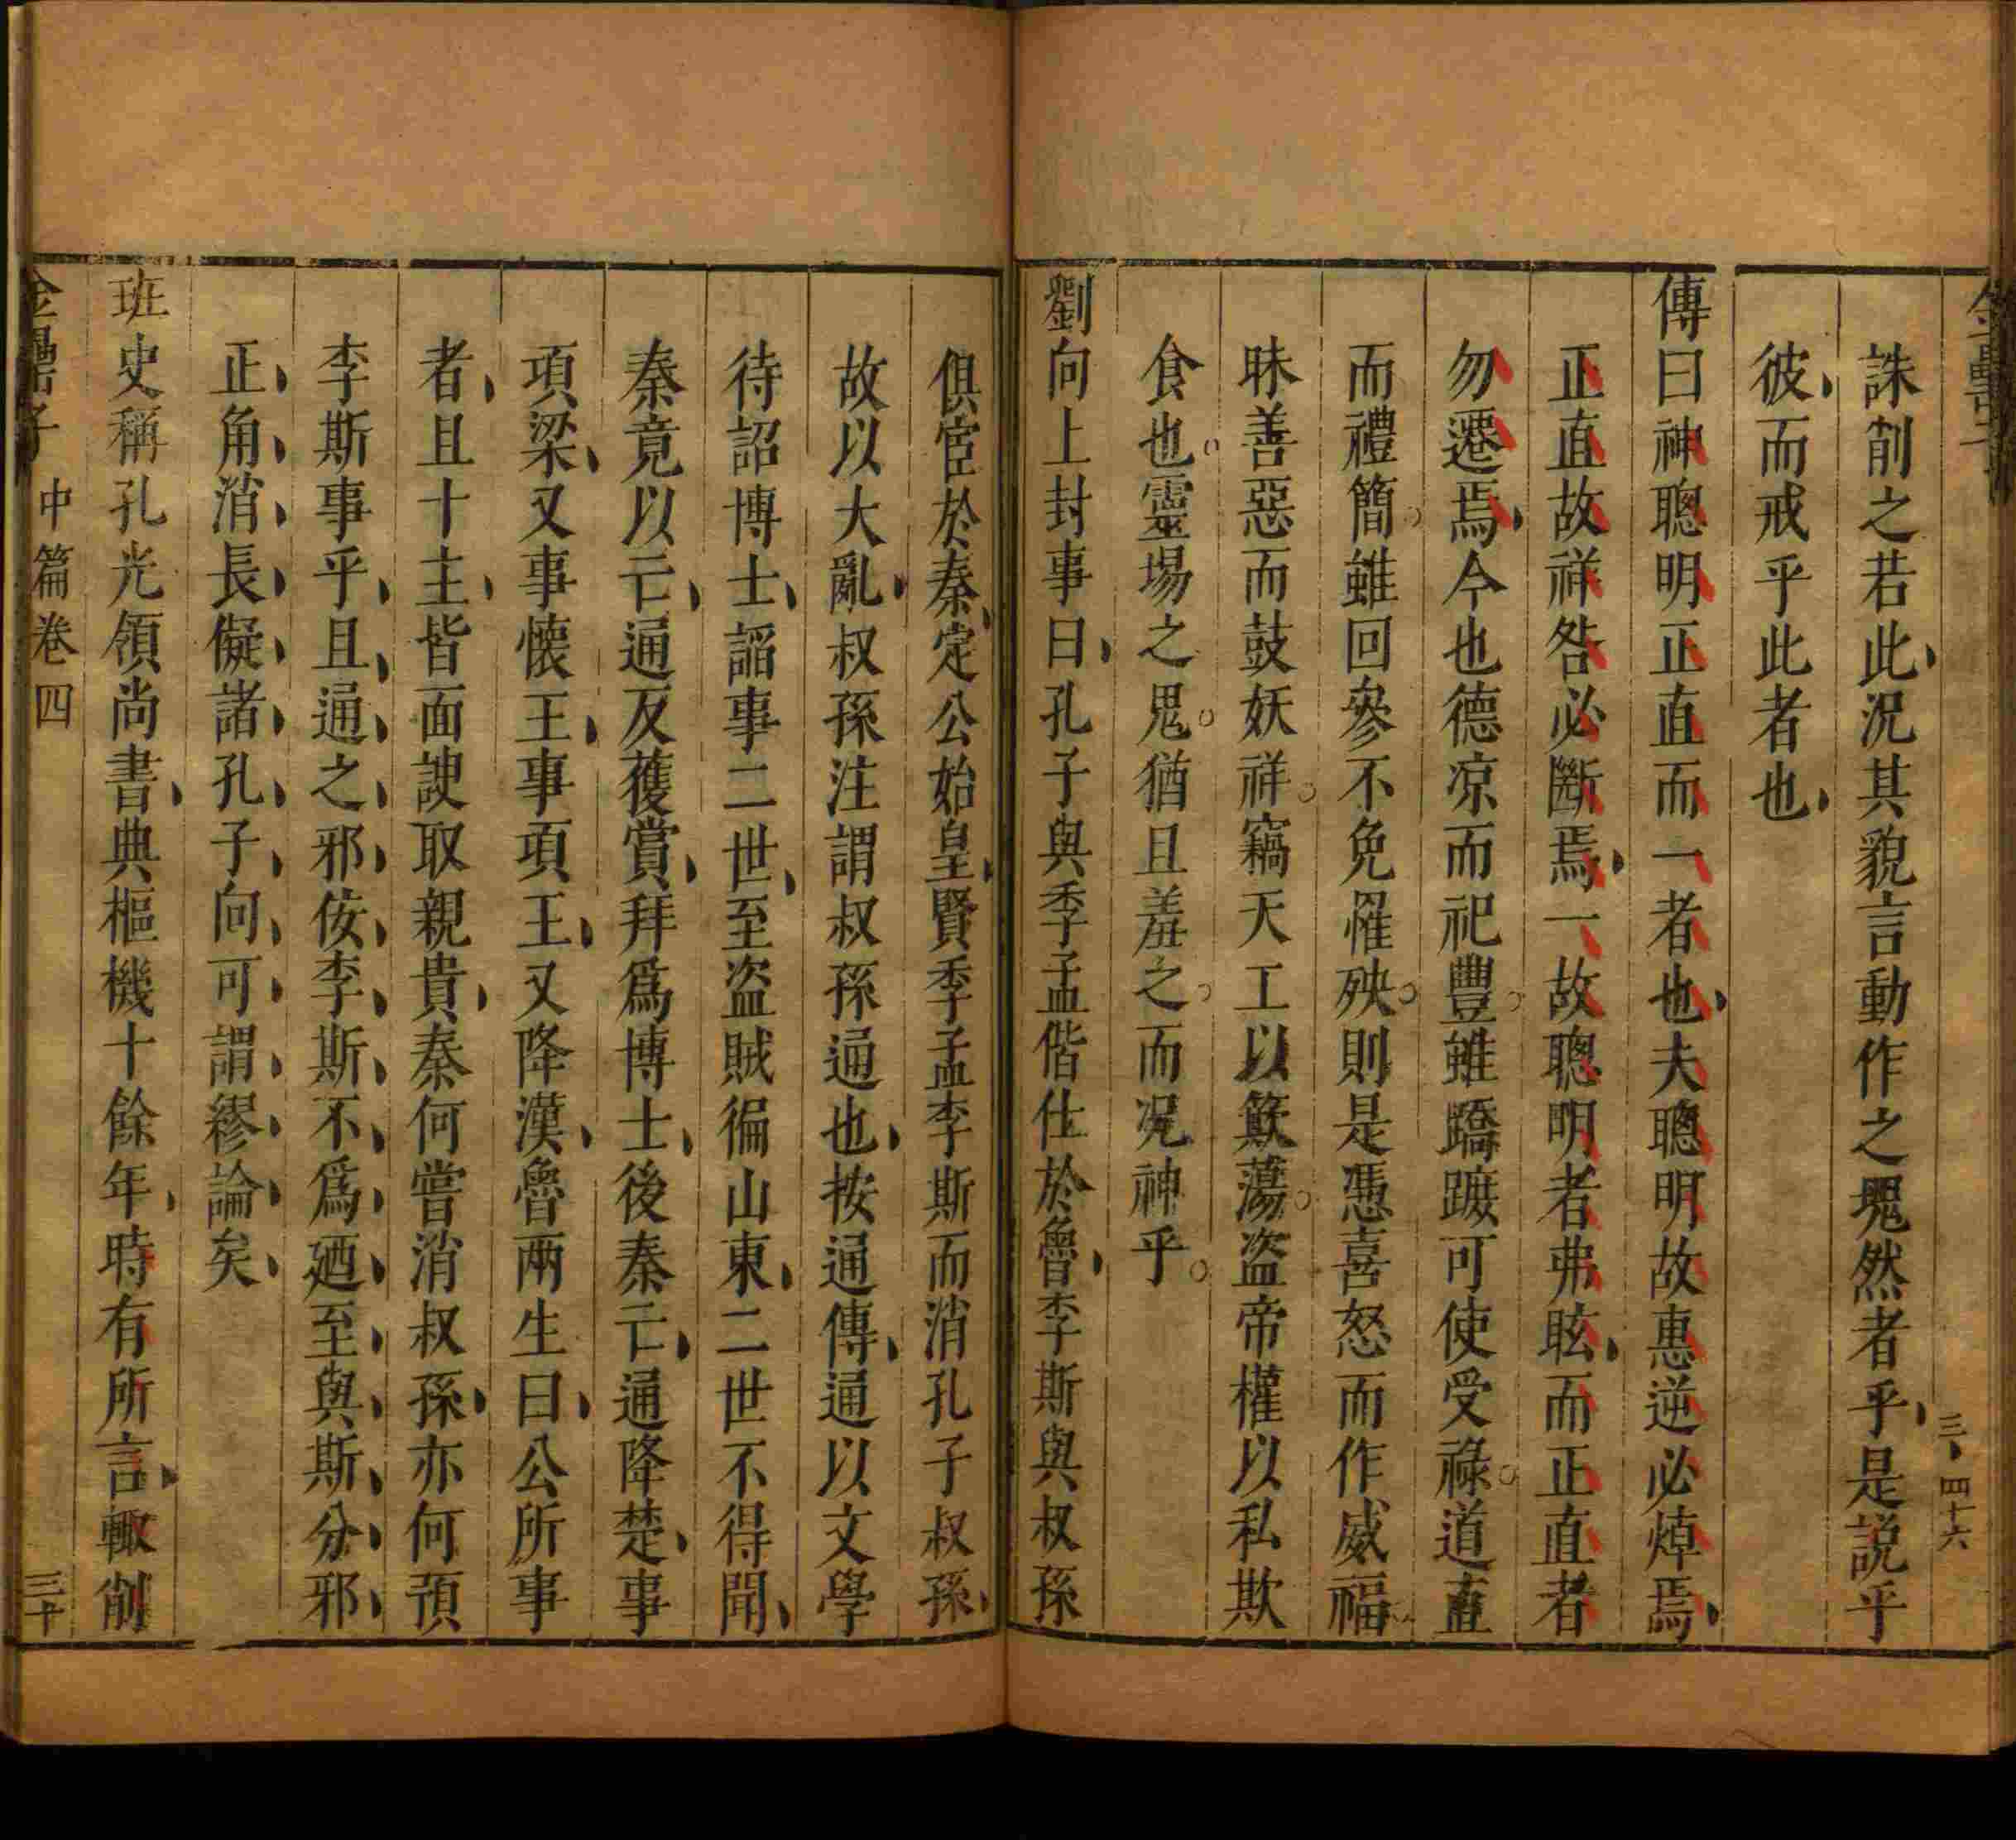 金罍子
三、四十六
誅削之若此況其貌言動作之瑰然者乎是説乎
彼而戒乎此者也
傳曰神聰明正直而一者也夫聰明故惠逆必焯焉
正直故祥咎必斷焉一故聰明者弗眩而正直者
勿遷焉今也德凉而祀豐雖蹻蹠可使受祿道直
而禮簡雖回參不免罹殃則是憑喜怒而作威福
昧善惡而鼓妖祥竊天工以簸蕩盜帝權以私欺
食也靈場之鬼猶且羞之而況神乎
劉向上封事曰孔子與季孟偕仕於魯李斯與叔孫
俱宦於秦定公始皇賢季孟李斯而消孔子叔孫
故以大亂叔孫注謂叔孫通也按通傳通以文學
待詔博士謟事二世至盜賊徧山東二世不得聞
秦竟以亡通反獲賞拜爲博士後秦亡通降楚事
項梁又事懷王事項王又降漢魯兩生曰公所事
者且十主皆面諛取親貴秦何嘗消叔孫亦何預
李斯事乎且通之邪侫李斯不爲廼至與斯分邪
正角消長儗諸孔子向可謂繆論矣
班史稱孔光領尚書典樞機十餘年時有所言輙削
金罍子 中篇卷四
三十